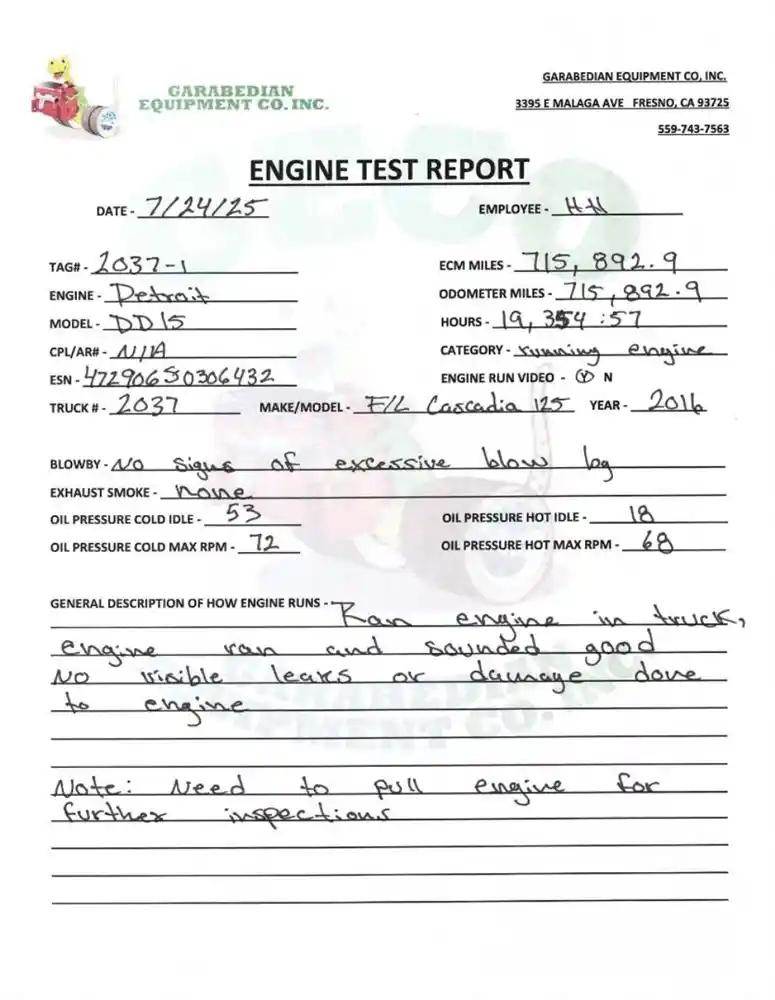 GARABEDIAN EQUIPMENT CO, INC.
GARABEDIAN
EQUIPMENT CO. INC.
3395 E MALAGA AVE FRESNO, CA 93725
559-743-7563
ENGINE TEST REPORT
DATE - 7/24/25 EMPLOYEE - HH
TAG# - 2037-1 ECM MILES - 715, 892.9
ENGINE - Detroit ODOMETER MILES - 715, 892.9
MODEL - DD15 HOURS - 19, 354 :57
CPL/AR# - N/A CATEGORY - running engine
ESN - 472906S0306432 ENGINE RUN VIDEO - Y N
TRUCK # - 2037 MAKE/MODEL - F/L Cascadia 125 YEAR - 2016
BLOWBY - NO signs of excessive blow by
EXHAUST SMOKE - none
OIL PRESSURE COLD IDLE - 53 OIL PRESSURE HOT IDLE - 18
OIL PRESSURE COLD MAX RPM - 72 OIL PRESSURE HOT MAX RPM - 68
GENERAL DESCRIPTION OF HOW ENGINE RUNS - Ran engine in truck,
engine ran and sounded good
NO visible leaks or damage done
to engine
Note: Need to pull engine for
further inspections
GECO
GARABEDIAN
EQUIPMENT CO. INC.